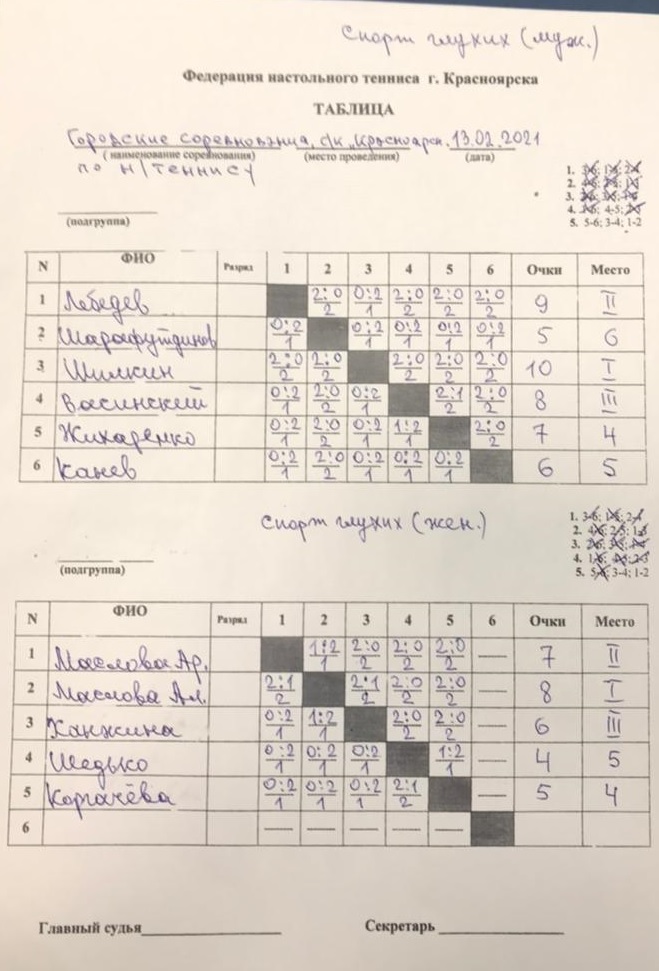 Спорт глухих (муж.)
Федерация настольного тенниса г. Красноярска
ТАБЛИЦА
Городские соревнования, с/к "Красноярск, 13.02.2021
( наименование соревнования) (место проведения) (дата)
по н/теннису
4-5;
5. 5-6; 3-4; 1-2
(подгруппа)
N ФИО Разряд 1 2 3 4 5 6 Очки Место
1 Лебедев 2:0/2 0:2/1 2:0/2 2:0/2 2:0/2 9 II
2 Шарафутдинов 0:2/1 0:2/1 0:2/1 0:2/1 0:2/1 5 6
3 Шишкин 2:0/2 2:0/2 2:0/2 2:0/2 2:0/2 10 I
4 Васинский 0:2/1 2:0/2 0:2/1 2:1/2 2:0/2 8 III
5 Жихаренко 0:2/1 2:0/2 0:2/1 1:2/1 2:0/2 7 4
6 Канев 0:2/1 2:0/2 0:2/1 0:2/1 0:2/1 6 5
Спорт глухих (жен.)
1. 3-6; 1-5; 2-4
2. 4-6; 2-5; 1-3
5. 5-6; 3-4; 1-2
(подгруппа)
N ФИО Разряд 1 2 3 4 5 6 Очки Место
1 Маслова Ар. 1:2/1 2:0/2 2:0/2 2:0/2 — 7 II
2 Маслова Ал. 2:1/2 2:1/2 2:0/2 2:0/2 — 8 I
3 Ханжина 0:2/1 1:2/1 2:0/2 2:0/2 — 6 III
4 Шедько 0:2/1 0:2/1 0:2/1 1:2/1 — 4 5
5 Коргачёва 0:2/1 0:2/1 0:2/1 2:1/2 — 5 4
6 — — — — —
Главный судья Секретарь